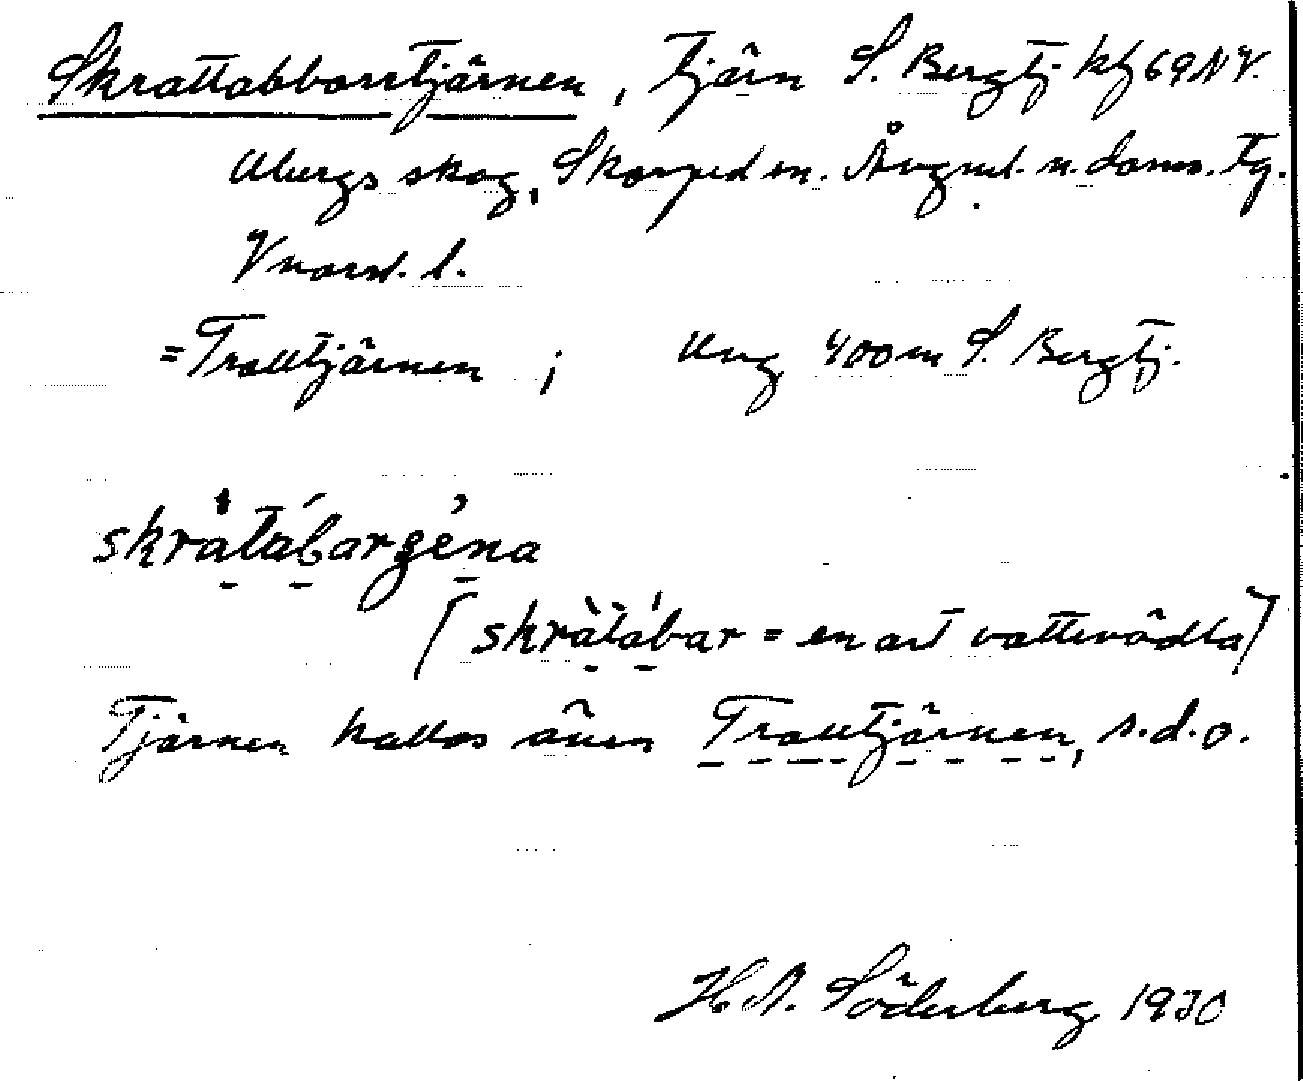 Skrattabborrtjärnen, tjärn S. Bergtj kbl 69 NV.
Ubergs skog, Skorped sn. Ångml. n. doms. tg.
Vnorrl. l.
= Trolltjärnen ; Ung 400 m S. Bergtj.
skràtábargéna
(skràtábar = en art vattenödla)
Tjärnen kallas även Trolltjärnen, s.d.o.
H.A. Söderberg 1930